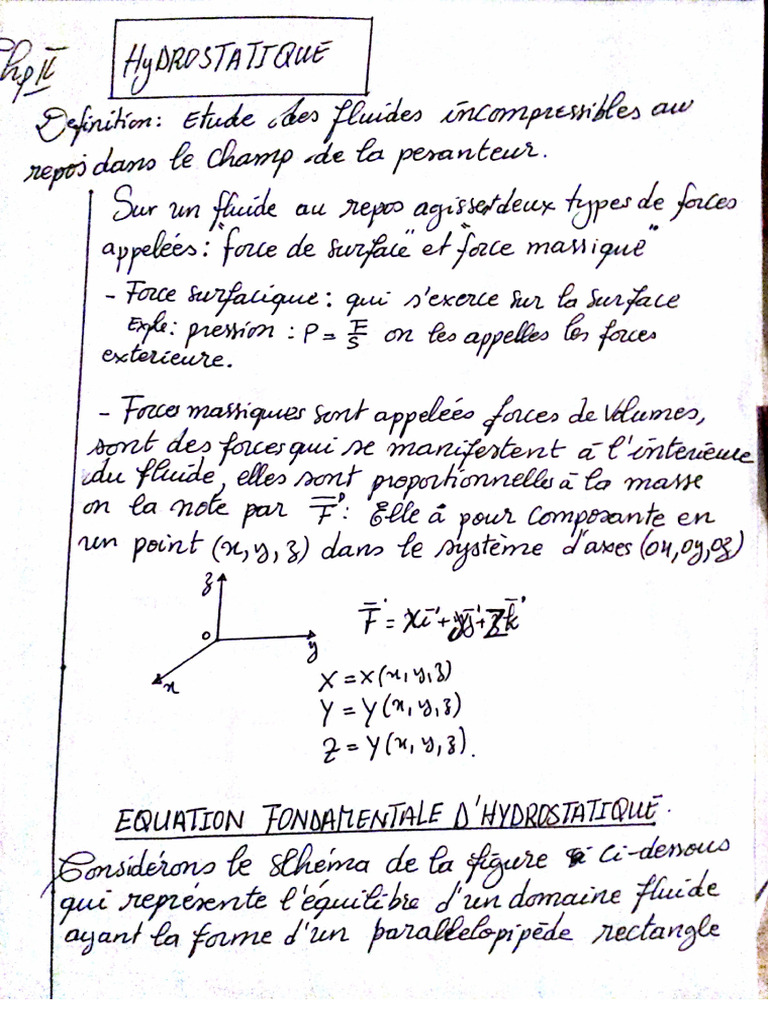 Chp II
HYDROSTATIQUE
Definition: Etude des fluides incompressibles au
repos dans le champ de la pesanteur.
Sur un fluide au repos agissent deux types de forces
appelées: "force de surface" et "force massique"
- Force surfacique: qui s'exerce sur la surface
Exple: pression: P = F/S on les appelles les forces
exterieure.
- Forces massiques sont appelées forces de Volumes,
sont des forces qui se manifestent à l'interieure
du fluide, elles sont proportionnelles à la masse
on la note par F⃗: Elle à pour composante en
un point (x, y, z) dans le système d'axes (ox, oy, oz)
z
o
y
x
F⃗ = Xi⃗ + Yj⃗ + Zk⃗
X = X(x, y, z)
Y = Y(x, y, z)
Z = Y(x, y, z).
EQUATION FONDAMENTALE D'HYDROSTATIQUE.
Considérons le schéma de la figure ci-dessous
qui représente l'équilibre d'un domaine fluide
ayant la forme d'un parallelopipède rectangle